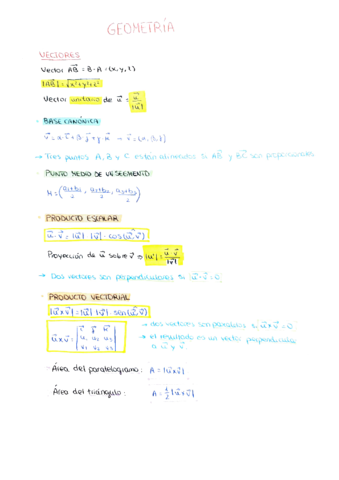 GEOMETRÍA
VECTORES
Vector AB⃗ = B - A = (x, y, z)
|AB⃗| = √x²+y²+z²
Vector unitario de u⃗ = u⃗/|u⃗|
BASE CANÓNICA
→ Tres puntos A, B y C están alineados si AB⃗ y BC⃗ son proporcionales
PUNTO MEDIO DE UN SEGMENTO
M = (a₁+b₁/2, a₂+b₂/2, a₃+b₃/2)
PRODUCTO ESCALAR
u⃗·v⃗ = |u⃗| · |v⃗| · cos(u⃗,v⃗)
Proyección de u⃗ sobre v⃗ ⇒ |u⃗'| = u⃗·v⃗/|v⃗|
→ Dos vectores son perpendiculares si u⃗·v⃗ = 0
PRODUCTO VECTORIAL
|u⃗×v⃗| = |u⃗| · |v⃗| · sen(u⃗,v⃗)
→ dos vectores son paralelos si u⃗×v⃗ = 0
u⃗×v⃗ = | i⃗ j⃗ k⃗ | u₁ u₂ u₃ | v₁ v₂ v₃ |
→ el resultado es un vector perpendicular
a u⃗ y v⃗
Área del paralelogramo: A = |u⃗×v⃗|
Área del triángulo: A = ½ |u⃗×v⃗|